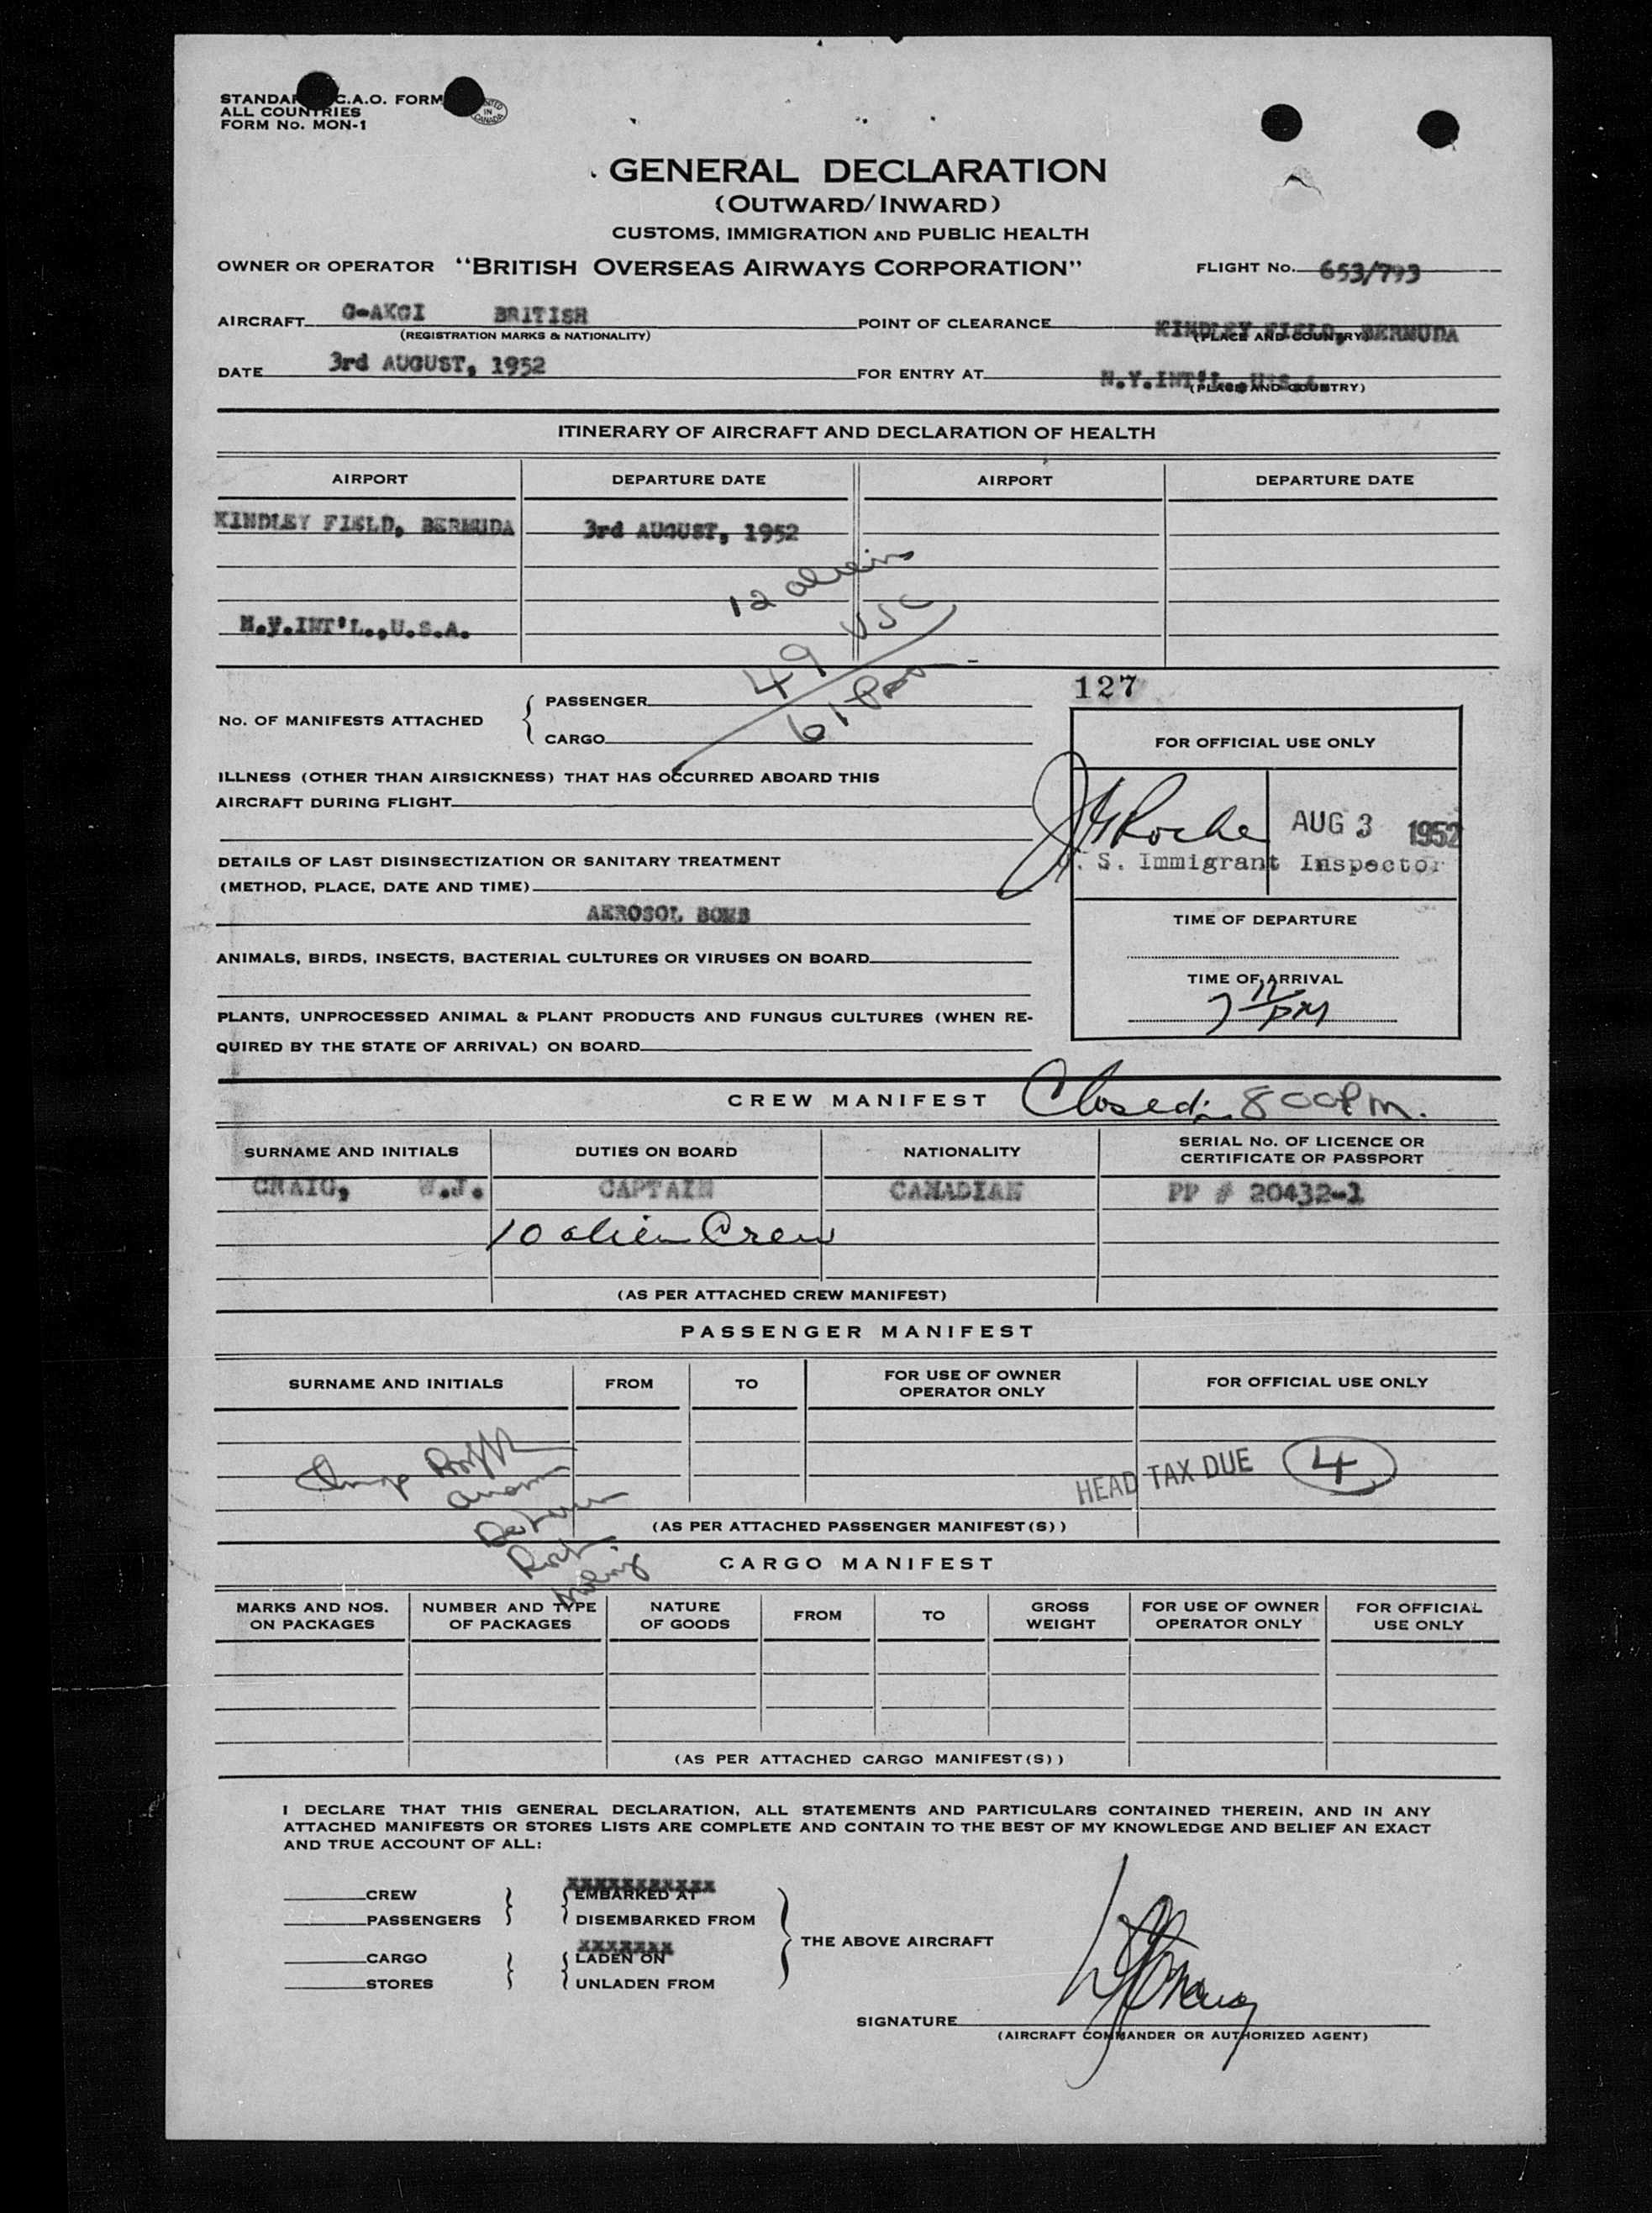 STANDARD I.C.A.O. FORM
ALL COUNTRIES
FORM No. MON-1
PRINTED IN CANADA
GENERAL DECLARATION
(OUTWARD/INWARD)
CUSTOMS, IMMIGRATION AND PUBLIC HEALTH
OWNER OR OPERATOR "BRITISH OVERSEAS AIRWAYS CORPORATION" FLIGHT No. 653/793
AIRCRAFT G-AKGI BRITISH POINT OF CLEARANCE KINDLEY FIELD, BERMUDA
(REGISTRATION MARKS & NATIONALITY) (PLACE AND COUNTRY)
DATE 3rd AUGUST, 1952 FOR ENTRY AT N.Y.INT'L.,U.S.A.
(PLACE AND COUNTRY)
ITINERARY OF AIRCRAFT AND DECLARATION OF HEALTH
AIRPORT DEPARTURE DATE AIRPORT DEPARTURE DATE
KINDLEY FIELD, BERMUDA 3rd AUGUST, 1952
12 aliens
N.Y.INT'L.,U.S.A.
49 USC
61 Pax
127
No. OF MANIFESTS ATTACHED { PASSENGER
CARGO
FOR OFFICIAL USE ONLY
ILLNESS (OTHER THAN AIRSICKNESS) THAT HAS OCCURRED ABOARD THIS
AIRCRAFT DURING FLIGHT
J Roche AUG 3 1952
U. S. Immigrant Inspector
DETAILS OF LAST DISINSECTIZATION OR SANITARY TREATMENT
(METHOD, PLACE, DATE AND TIME)
AEROSOL BOMB
TIME OF DEPARTURE
ANIMALS, BIRDS, INSECTS, BACTERIAL CULTURES OR VIRUSES ON BOARD
TIME OF ARRIVAL
7 11 PM
PLANTS, UNPROCESSED ANIMAL & PLANT PRODUCTS AND FUNGUS CULTURES (WHEN RE-
QUIRED BY THE STATE OF ARRIVAL) ON BOARD
CREW MANIFEST Closed: 800 Pm.
SURNAME AND INITIALS DUTIES ON BOARD NATIONALITY SERIAL No. OF LICENCE OR
CERTIFICATE OR PASSPORT
CRAIG, W.J. CAPTAIN CANADIAN PP # 20432-1
10 alien Crew
(AS PER ATTACHED CREW MANIFEST)
PASSENGER MANIFEST
SURNAME AND INITIALS FROM TO FOR USE OF OWNER
OPERATOR ONLY FOR OFFICIAL USE ONLY
HEAD TAX DUE 4
(AS PER ATTACHED PASSENGER MANIFEST(S))
CARGO MANIFEST
MARKS AND NOS.
ON PACKAGES NUMBER AND TYPE
OF PACKAGES NATURE
OF GOODS FROM TO GROSS
WEIGHT FOR USE OF OWNER
OPERATOR ONLY FOR OFFICIAL
USE ONLY
(AS PER ATTACHED CARGO MANIFEST(S))
I DECLARE THAT THIS GENERAL DECLARATION, ALL STATEMENTS AND PARTICULARS CONTAINED THEREIN, AND IN ANY
ATTACHED MANIFESTS OR STORES LISTS ARE COMPLETE AND CONTAIN TO THE BEST OF MY KNOWLEDGE AND BELIEF AN EXACT
AND TRUE ACCOUNT OF ALL:
XXXXXXXXXXX
CREW EMBARKED AT
PASSENGERS DISEMBARKED FROM
THE ABOVE AIRCRAFT
XXXXXXX
CARGO LADEN ON
STORES UNLADEN FROM
SIGNATURE
(AIRCRAFT COMMANDER OR AUTHORIZED AGENT)